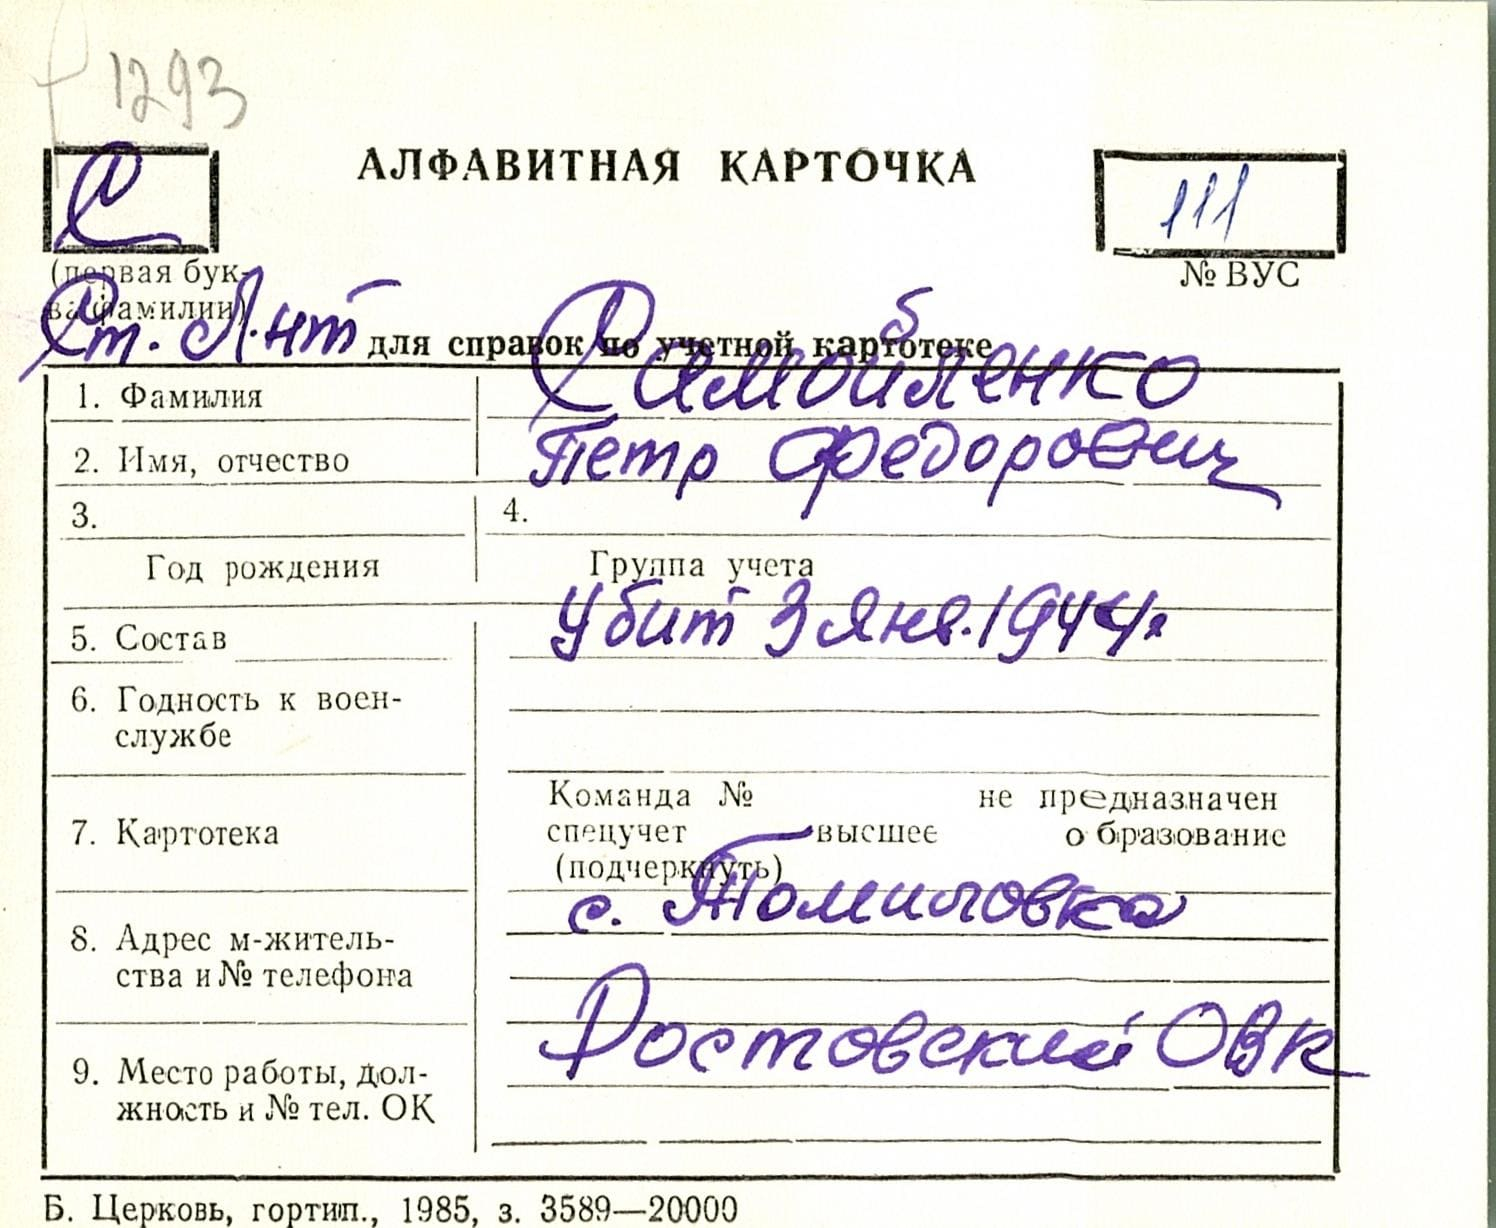 1293
С
АЛФАВИТНАЯ КАРТОЧКА
111
(первая бук-
ва фамилии)
№ ВУС
Ст. л-нт
для справок по учетной картотеке
1. Фамилия
Самойленко
2. Имя, отчество
Петр Федорович
3.
4.
Год рождения
Группа учета
5. Состав
Убит 3 янв. 1944г
6. Годность к воен-
службе
7. Картотека
Команда № не предназначен
спецучет высшее образование
(подчеркнуть)
8. Адрес м-житель-
ства и № телефона
с. Томиловка
9. Место работы, дол-
жность и № тел. ОК
Ростовский ОВК
Б. Церковь, гортип., 1985, з. 3589—20000